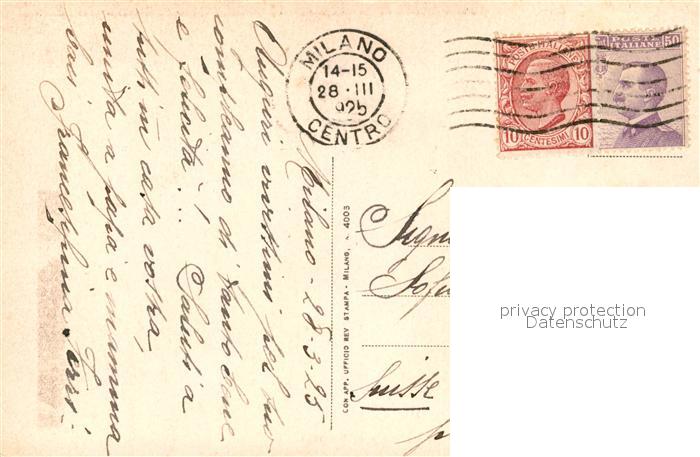 MILANO
14-15
28 · III
925
CENTRO
POSTE ITALIANE
10 CENTESIMI 10
POSTE ITALIANE 50
Milano - 28-3-25
Auguri vivissimi pel tuo
compleanno di tanto bene
e felicità - ! Saluti a
tutti in casa vostra,
unita a papà e mamma
baci Franceschina
CON APP. UFFICIO REV. STAMPA - MILANO, N. 4003
Sign
Sofi
Suisse
privacy protection
Datenschutz